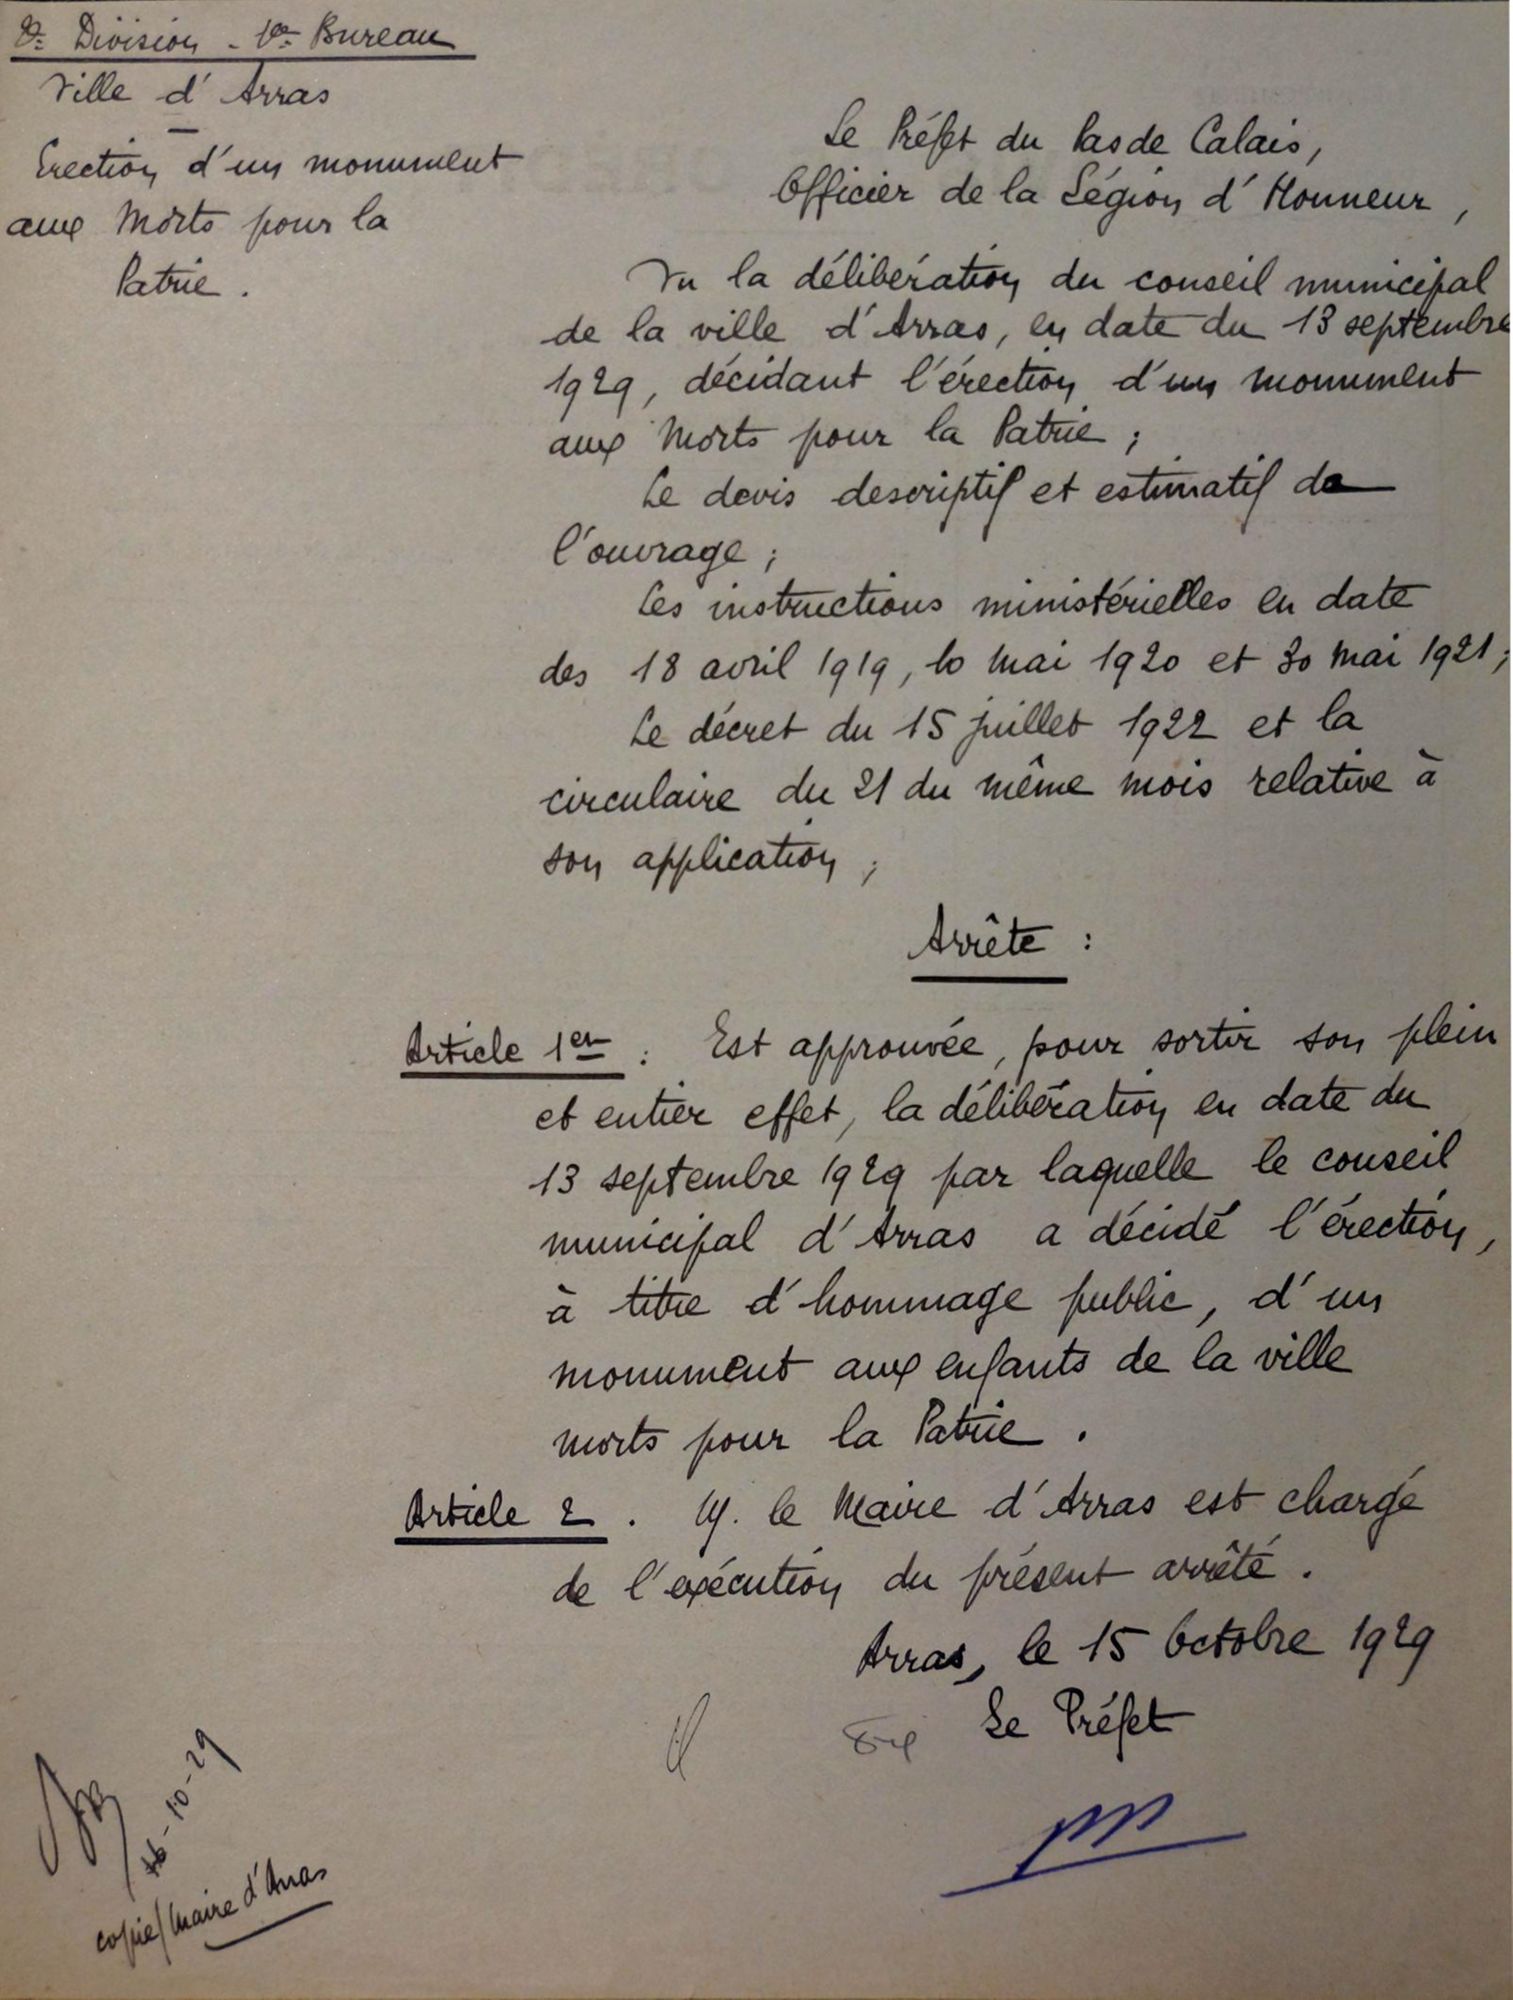 Division - 1er Bureau
Ville d'Arras
Erection d'un monument
aux Morts pour la
Patrie.
Le Préfet du Pas de Calais,
Officier de la Légion d'Honneur,
Vu la délibération du conseil municipal
de la ville d'Arras, en date du 13 septembre
1929, décidant l'érection d'un monument
aux Morts pour la Patrie ;
Le devis descriptif et estimatif de
l'ouvrage ;
Les instructions ministérielles en date
des 18 avril 1919, 10 mai 1920 et 30 mai 1921 ;
Le décret du 15 juillet 1922 et la
circulaire du 21 du même mois relative à
son application ;
Arrête :
Article 1er : Est approuvée, pour sortir son plein
et entier effet, la délibération en date du
13 septembre 1929 par laquelle le conseil
municipal d'Arras a décidé l'érection,
à titre d'hommage public, d'un
monument aux enfants de la ville
morts pour la Patrie.
Article 2. M. le Maire d'Arras est chargé
de l'exécution du présent arrêté.
Arras, le 15 Octobre 1929
Le Préfet
16-10-29
copie/Maire d'Arras